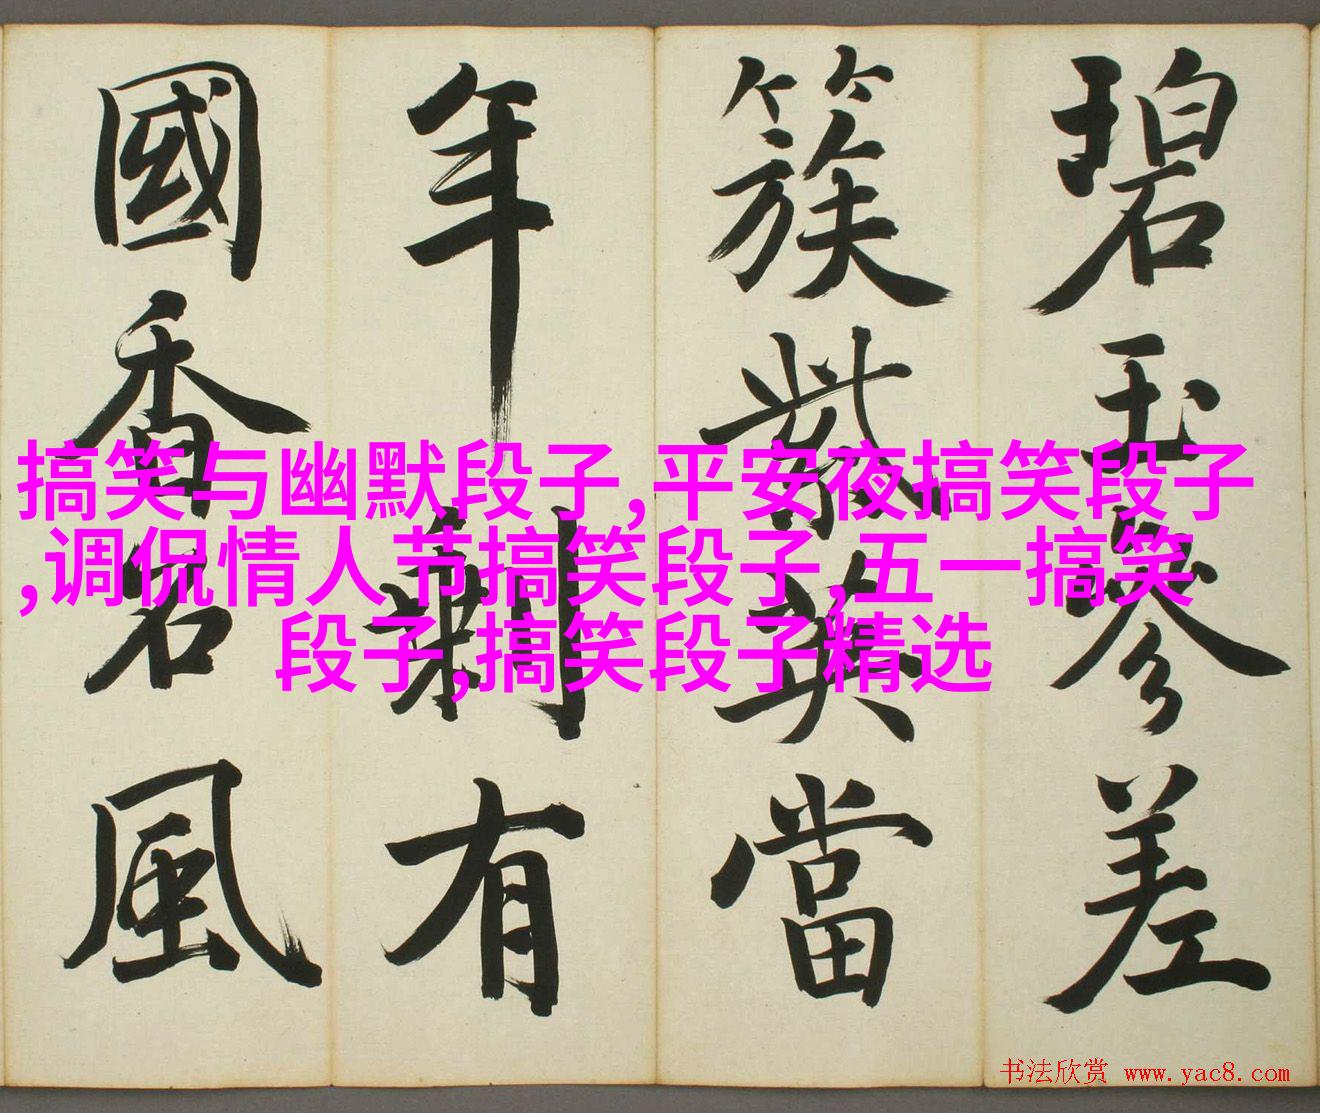 碧玉參差
簇紫英當
年剩有
國香名風
搞笑与幽默段子,平安夜搞笑段子
,调侃情人节搞笑段子,五一搞笑
段子,搞笑段子精选
书法欣赏 www.yac8.com